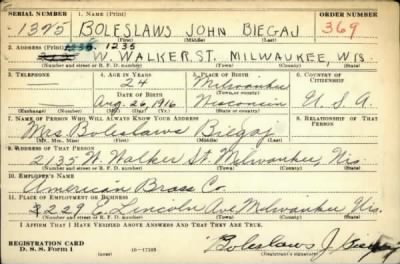 SERIAL NUMBER 1. NAME (Print) ORDER NUMBER
1325 BOLESLAWS JOHN BIEGAJ 369
2. ADDRESS (Print) 1235 1235
W. WALKER, ST. MILWAUKEE, WIS.
(Number and street or R. F. D. number) (Town) (County) (State)
3. TELEPHONE 4. AGE IN YEARS 5. PLACE OF BIRTH 6. COUNTRY OF CITIZENSHIP
— 24 Milwaukee
DATE OF BIRTH (Town or county)
Aug. 26, 1916 Wisconsin U. S. A
(Exchange) (Number) (Mo.) (Day) (Yr.) (State or country)
7. NAME OF PERSON WHO WILL ALWAYS KNOW YOUR ADDRESS 8. RELATIONSHIP OF THAT PERSON
Mrs. Boleslaws Biegaj
(Mr., Mrs., Miss) (First) (Middle) (Last)
9. ADDRESS OF THAT PERSON
2135 W. Walker St. Milwaukee, Wis.
(Number and street or R. F. D. number) (Town) (County) (State)
10. EMPLOYER'S NAME
American Brass Co.
11. PLACE OF EMPLOYMENT OR BUSINESS
2229 E. Lincoln Ave Milwaukee Wis.
(Number and street or R. F. D. number) (Town) (County) (State)
I AFFIRM THAT I HAVE VERIFIED ABOVE ANSWERS AND THAT THEY ARE TRUE.
REGISTRATION CARD
D. S. S. Form 1 (over) 16-17105 Boleslaws J. Biegaj
(Registrant's signature)